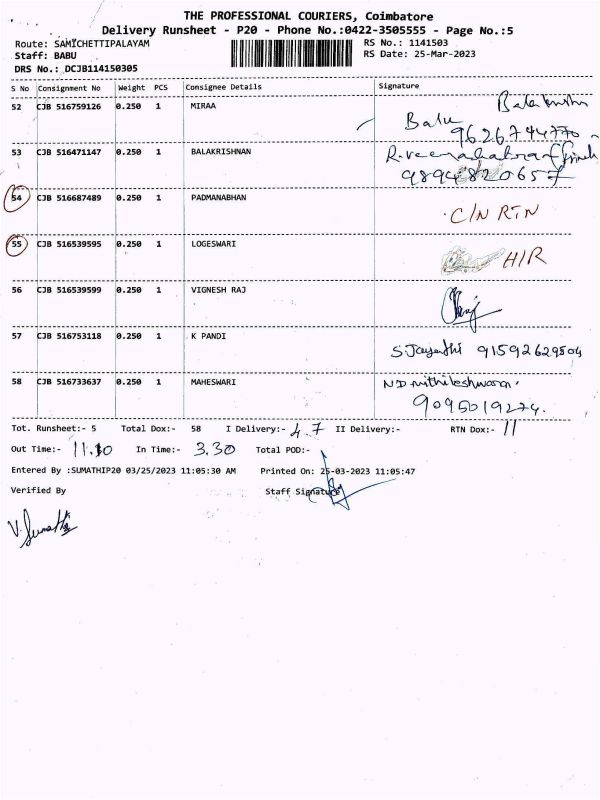 THE PROFESSIONAL COURIERS, Coimbatore
Delivery Runsheet - P20 - Phone No.:0422-3505555 - Page No.:5
Route: SAMICHETTIPALAYAM
RS No.: 1141503
Staff: BABU
RS Date: 25-Mar-2023
DRS No.: DCJB114150305
S No Consignment No Weight PCS Consignee Details Signature
52 CJB 516759126 0.250 1 MIRAA
Balu
9626744770
53 CJB 516471147 0.250 1 BALAKRISHNAN
9894820657
54 CJB 516687489 0.250 1 PADMANABHAN C/N RTN
55 CJB 516539595 0.250 1 LOGESWARI H/R
56 CJB 516539599 0.250 1 VIGNESH RAJ
57 CJB 516753118 0.250 1 K PANDI
S Jayanthi 91592629504
58 CJB 516733637 0.250 1 MAHESWARI
9095019274.
Tot. Runsheet:- 5 Total Dox:- 58 I Delivery:- 47 II Delivery:- RTN Dox:- 11
Out Time:- 11.10 In Time:- 3.30 Total POD:-
Entered By :SUMATHIP20 03/25/2023 11:05:30 AM Printed On: 25-03-2023 11:05:47
Verified By Staff Signature
V. Sumathi